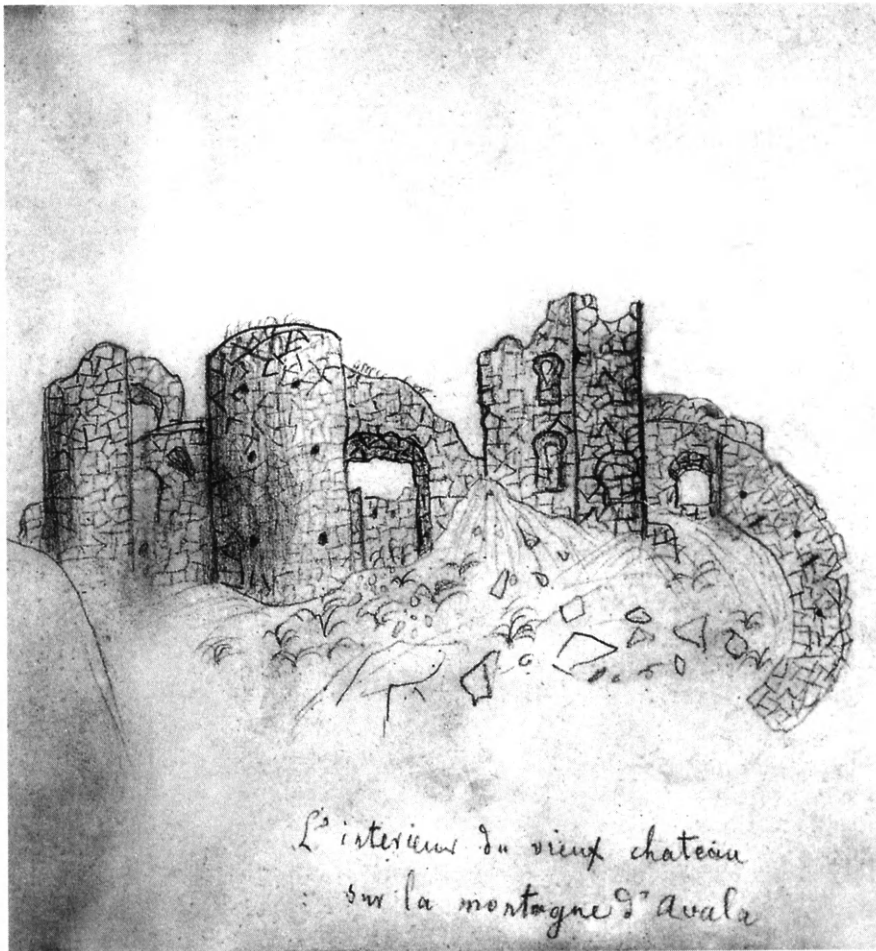 L'interieur du vieux chateau
sur la montagne d'Avala